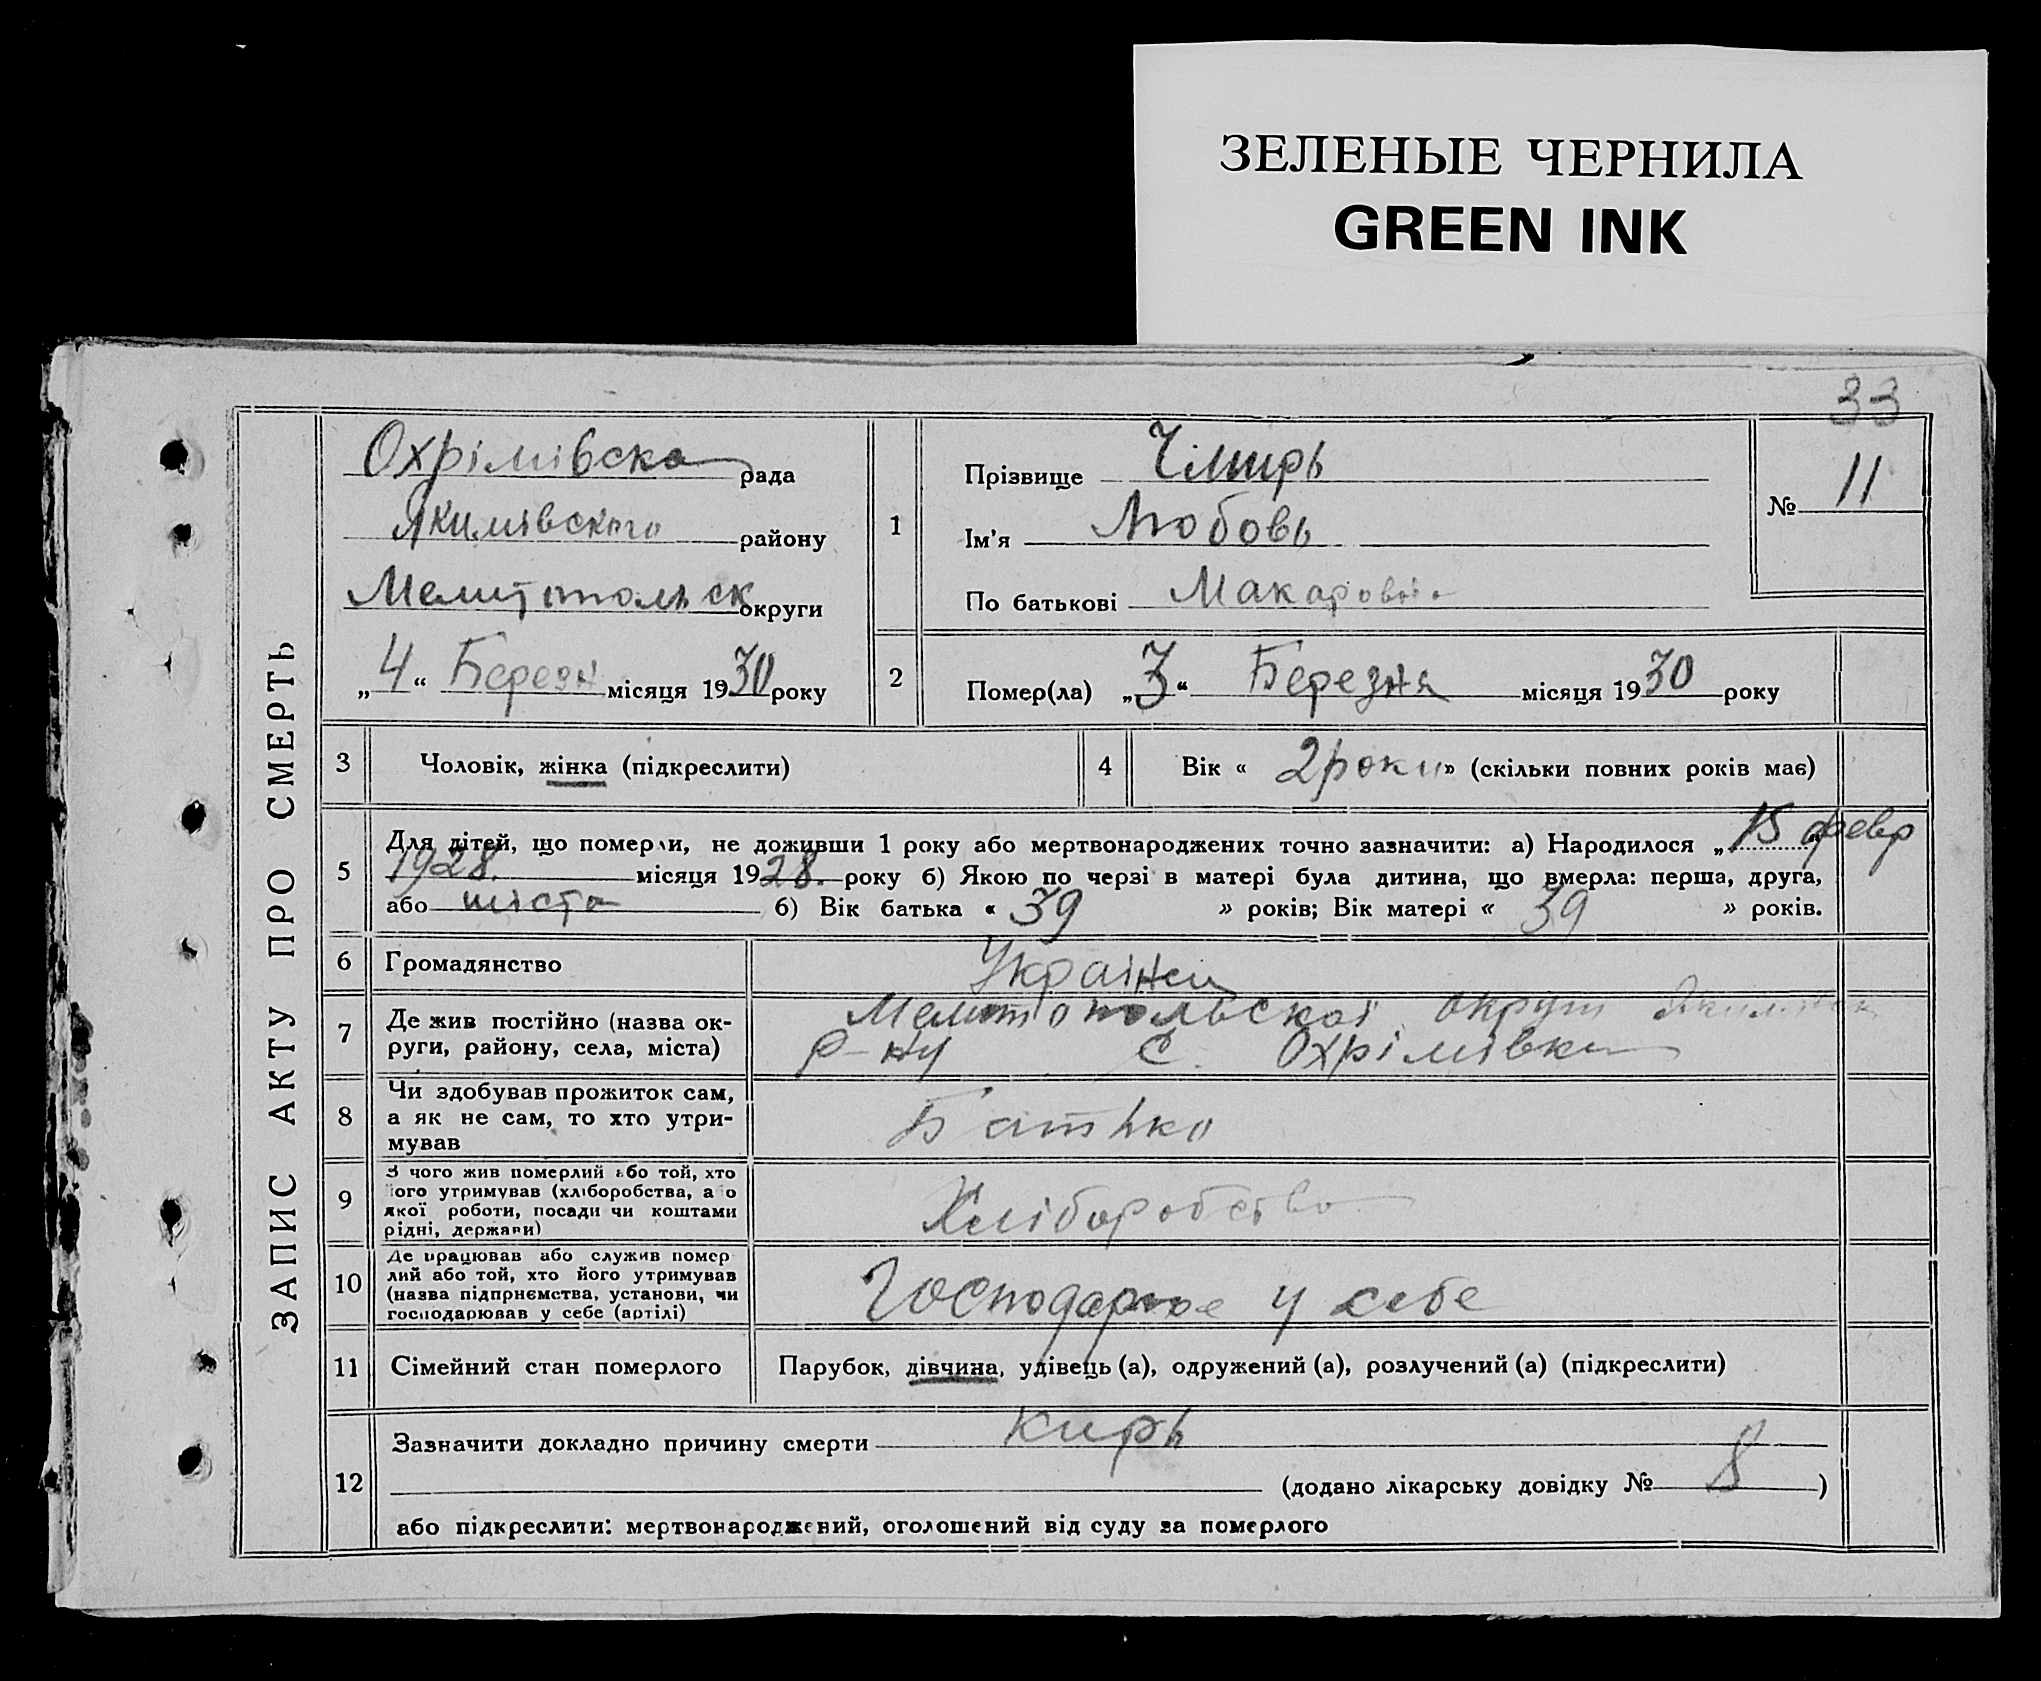 ЗЕЛЕНЫЕ ЧЕРНИЛА
GREEN INK
33
ЗАПИС АКТУ ПРО СМЕРТЬ
Охрімівска рада
Якимівского району
Мелитопольск округи
„4“ Березн місяця 1930 року
1
Прізвище Чімирь
Ім'я Любовь
По батькові Макаровна
№ 11
2
Помер(ла) „3“ Березня місяця 1930 року
3
Чоловік, жінка (підкреслити)
4
Вік « 2 роки » (скільки повних років має)
5
Для дітей, що померли, не доживши 1 року або мертвонароджених точно зазначити: а) Народилося „15 февр
1928. місяця 1928. року б) Якою по черзі в матері була дитина, що вмерла: перша, друга,
або шіста б) Вік батька « 39 » років; Вік матері « 39 » років.
6
Громадянство
Українец
7
Де жив постійно (назва ок-
руги, району, села, міста)
Мелитопольскої округи Якимівск
р-ну С. Охрімівка
8
Чи здобував прожиток сам,
а як не сам, то хто утри-
мував
Батько
9
З чого жив померлий або той, хто
його утримував (хліборобства, а о
якої роботи, посади чи коштами
рідні, держави)
Хліборобство
10
Де працював або служив помер
лий або той, хто його утримував
(назва підприємства, установи, чи
господарював у себе (артілі)
Господарює у себе
11
Сімейний стан померлого
Парубок, дівчина, удівець (а), одружений (а), розлучений (а) (підкреслити)
12
Зазначити докладно причину смерти кирь
(додано лікарську довідку № 8 )
або підкреслити: мертвонароджений, оголошений від суду за померлого